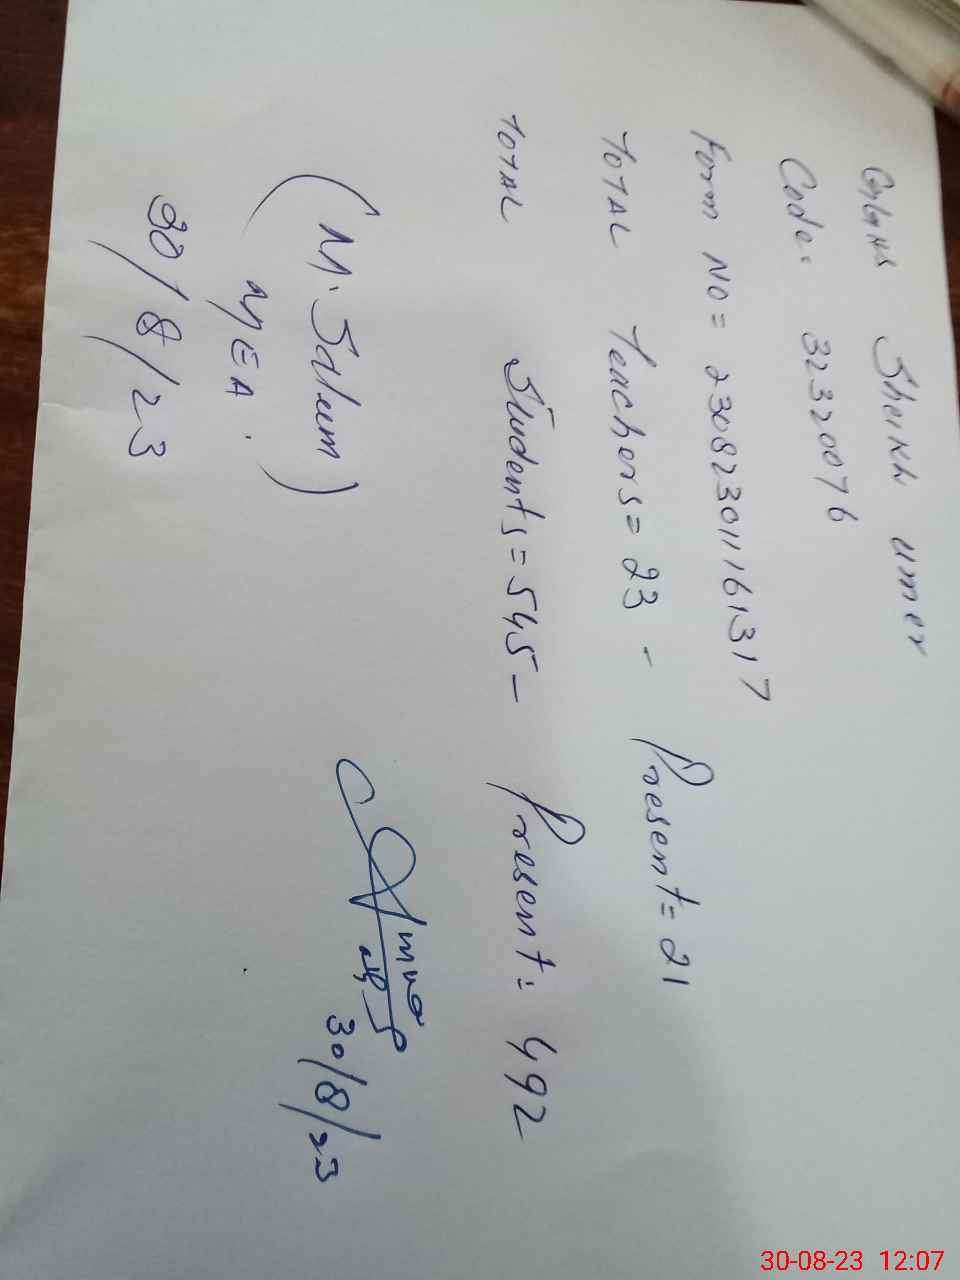 GGHS Sheikh umer
Code. 32320076
Form No = 23082301161317
TOTAL Teachers = 23 - Present = 21
TOTAL Students = 545 - Present = 492
(M. Salum)
MEA.
30/8/23
30/8/23
30-08-23 12:07